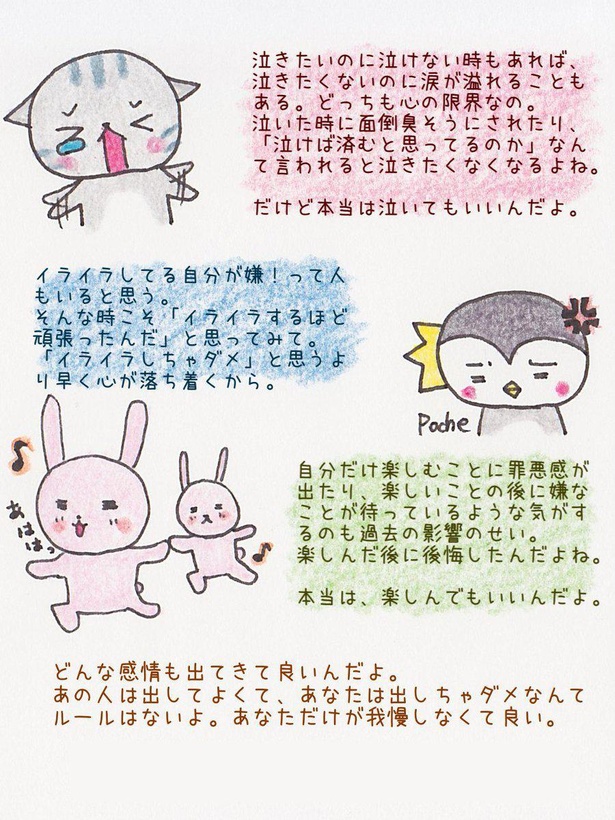 泣きたいのに泣けない時もあれば、
泣きたくないのに涙が溢れることも
ある。どっちも心の限界なの。
泣いた時に面倒臭そうにされたり、
「泣けば済むと思ってるのか」なん
て言われると泣きたくなくなるよね。
だけど本当は泣いてもいいんだよ。
イライラしてる自分が嫌！って人
もいると思う。
そんな時こそ「イライラするほど
頑張ったんだ」と思ってみて。
「イライラしちゃダメ」と思うよ
り早く心が落ち着くから。
Poche
あははっ
自分だけ楽しむことに罪悪感が
出たり、楽しいことの後に嫌な
ことが待っているような気がす
るのも過去の影響のせい。
楽しんだ後に後悔したんだよね。
本当は、楽しんでもいいんだよ。
どんな感情も出てきて良いんだよ。
あの人は出してよくて、あなたは出しちゃダメなんて
ルールはないよ。あなただけが我慢しなくて良い。